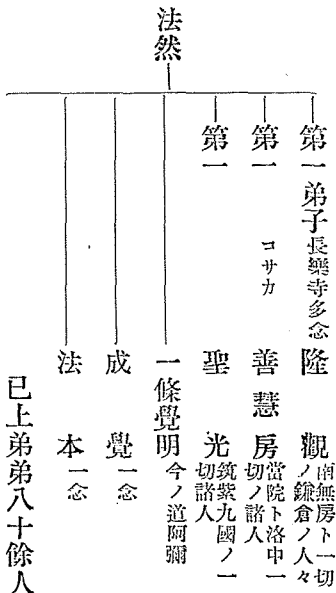 法然
第一弟子長樂寺多念隆觀南無房ト一切ノ鎌倉ノ人々
第一コサカ善慧房當院ト洛中一切ノ諸人
第一聖光筑紫九國ノ一切諸人
一條覺明今ノ道阿彌
成覺一念
法本一念
已上弟弟八十餘人